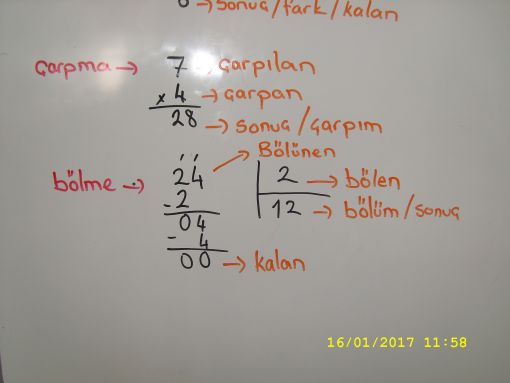 → sonuç/fark/kalan
çarpma → 7 → çarpılan
x 4 → çarpan
28 → sonuç/çarpım
Bölünen
bölme → 24 2 → bölen
- 2 12 → bölüm/sonuç
04
- 4
00 → kalan
16/01/2017 11:58